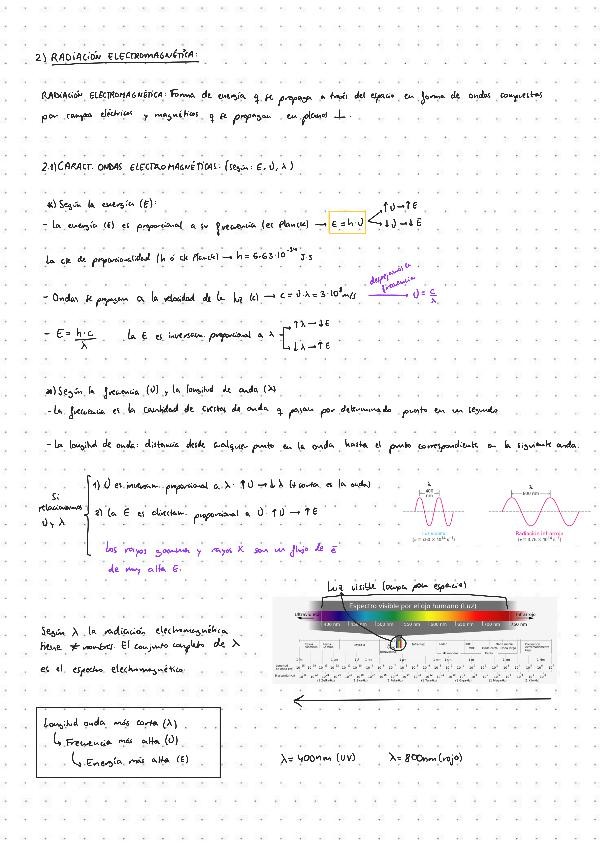 2) RADIACIÓN ELECTROMAGNÉTICA:
RADIACIÓN ELECTROMAGNÉTICA: Forma de energía q se propaga a través del espacio en forma de ondas compuestas
por campos eléctricos y magnéticos q se propagan en planos ⊥.
2.1) CARACT. ONDAS ELECTROMAGNÉTICAS: (según: E, υ, λ)
*) Según la energía (E):
- La energía (E) es proporcional a su frecuencia (es Planck) → E = h·υ
↑υ → ↑E
↓υ → ↓E
La cte de proporcionalidad (h ó cte Planck) → h = 6.63·10⁻³⁴ J·s
- Ondas se propagan a la velocidad de la luz (c) → c = υ·λ = 3·10⁸ m/s
despejamos la
frecuencia
υ = c/λ
- E = h·c/λ La E es inversam. proporcional a λ
↑λ → ↓E
↓λ → ↑E
*) Según la frecuencia (υ) y la longitud de onda (λ)
- La frecuencia es la cantidad de crestas de onda q pasan por determinado punto en un segundo
- La longitud de onda: distancia desde cualquier punto en la onda hasta el punto correspondiente en la siguiente onda.
Si
relacionamos
υ y λ
1) υ es inversam. proporcional a λ. ↑υ → ↓λ (+ corta es la onda)
2) La E es directam. proporcional a υ. ↑υ → ↑E
Los rayos gamma y rayos X son un flujo de ē
de muy alta E.
λ
400
nm
λ
800 nm
Radiación infrarroja
Luz visible (ocupa poco espacio)
Espectro visible por el ojo humano (Luz)
Ultravioleta
Infrarrojo
400 nm 450 nm 500 nm 550 nm 600 nm 650 nm 700 nm 750 nm
Según λ, la radiación electromagnética
tiene ≠ nombres. El conjunto completo de λ
es el espectro electromagnético
Longitud onda más corta (λ)
↳ Frecuencia más alta (υ)
↳ Energía más alta (E)
λ = 400nm (UV) λ = 800nm (rojo)